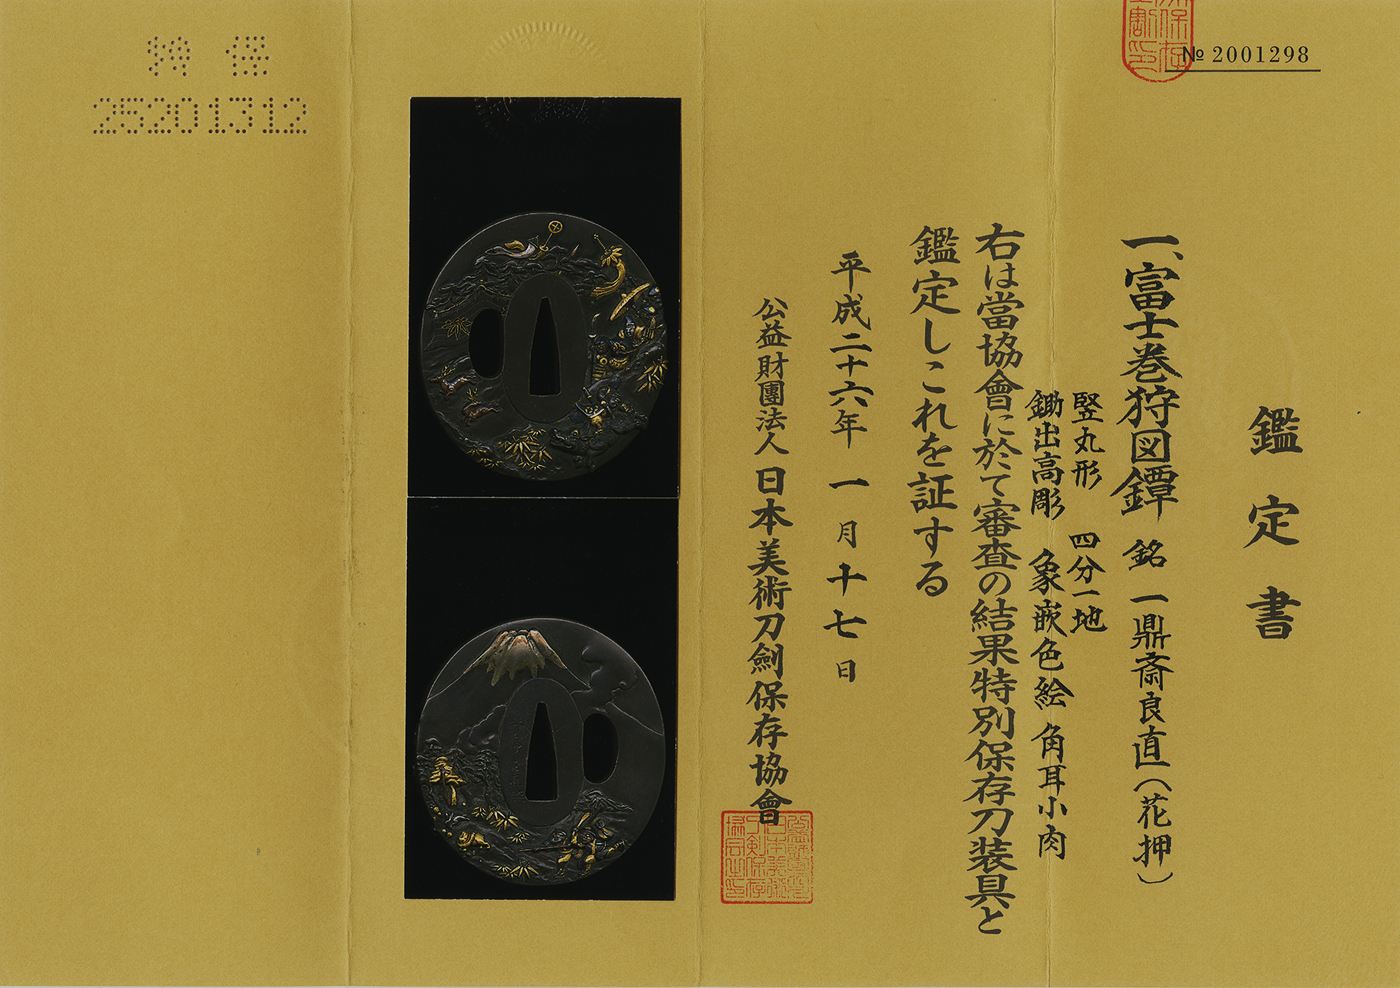 № 2001298
鑑定書
一、富士巻狩図鐔 銘 一鼎斎良直(花押)
竪丸形 四分一地
鋤出高彫 象嵌色絵 角耳小肉
右は當協會に於て審査の結果特別保存刀装具と
鑑定しこれを証する
平成二十六年 一月十七日
公益財團法人 日本美術刀劍保存協會
特 保
25201312